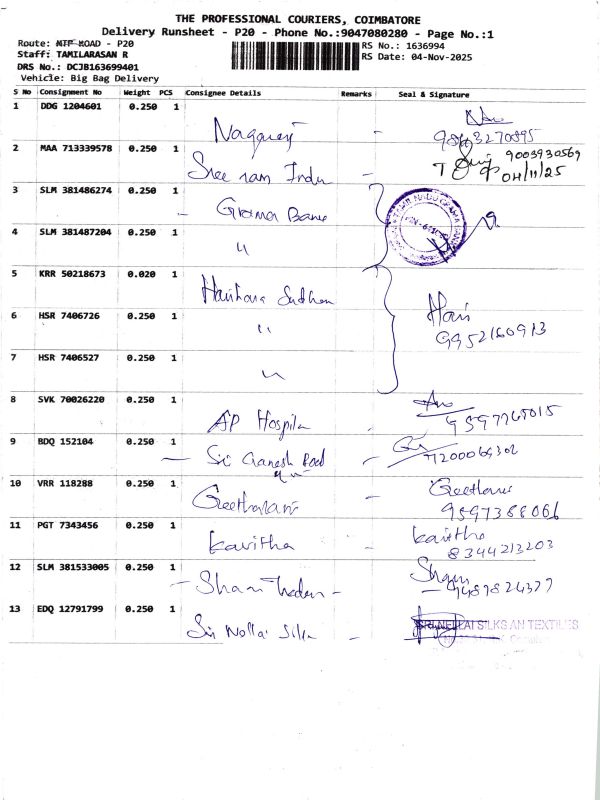 THE PROFESSIONAL COURIERS, COIMBATORE
Delivery Runsheet - P20 - Phone No.:9047080280 - Page No.:1
Route: MTP ROAD - P20
RS No.: 1636994
Staff: TAMILARASAN R
RS Date: 04-Nov-2025
DRS No.: DCJB163699401
Vehicle: Big Bag Delivery
S No Consignment No Weight PCS Consignee Details Remarks Seal & Signature
1 DDG 1204601 0.250 1 Nagaraj -
2 MAA 713339578 0.250 1 Sree ram Indu - 9003930569
04/11/25
3 SLM 381486274 0.250 1 - Grama Bank
4 SLM 381487204 0.250 1 "
5 KRR 50218673 0.020 1 Harihara Sudhan
6 HSR 7406726 0.250 1 " Hari
9952160913
7 HSR 7406527 0.250 1 "
8 SVK 70026220 0.250 1 AP Hospital -
9 BDQ 152104 0.250 1 - Sri Ganesh -
10 VRR 118288 0.250 1 Geetharani - Geetha
9597388066
11 PGT 7343456 0.250 1 Kavitha - Kavitha
8344213203
12 SLM 381533005 0.250 1 - Sham Traders -
13 EDQ 12791799 0.250 1 Sri Nellai Silks - SRI NELLAI SILKS AN TEXTILES